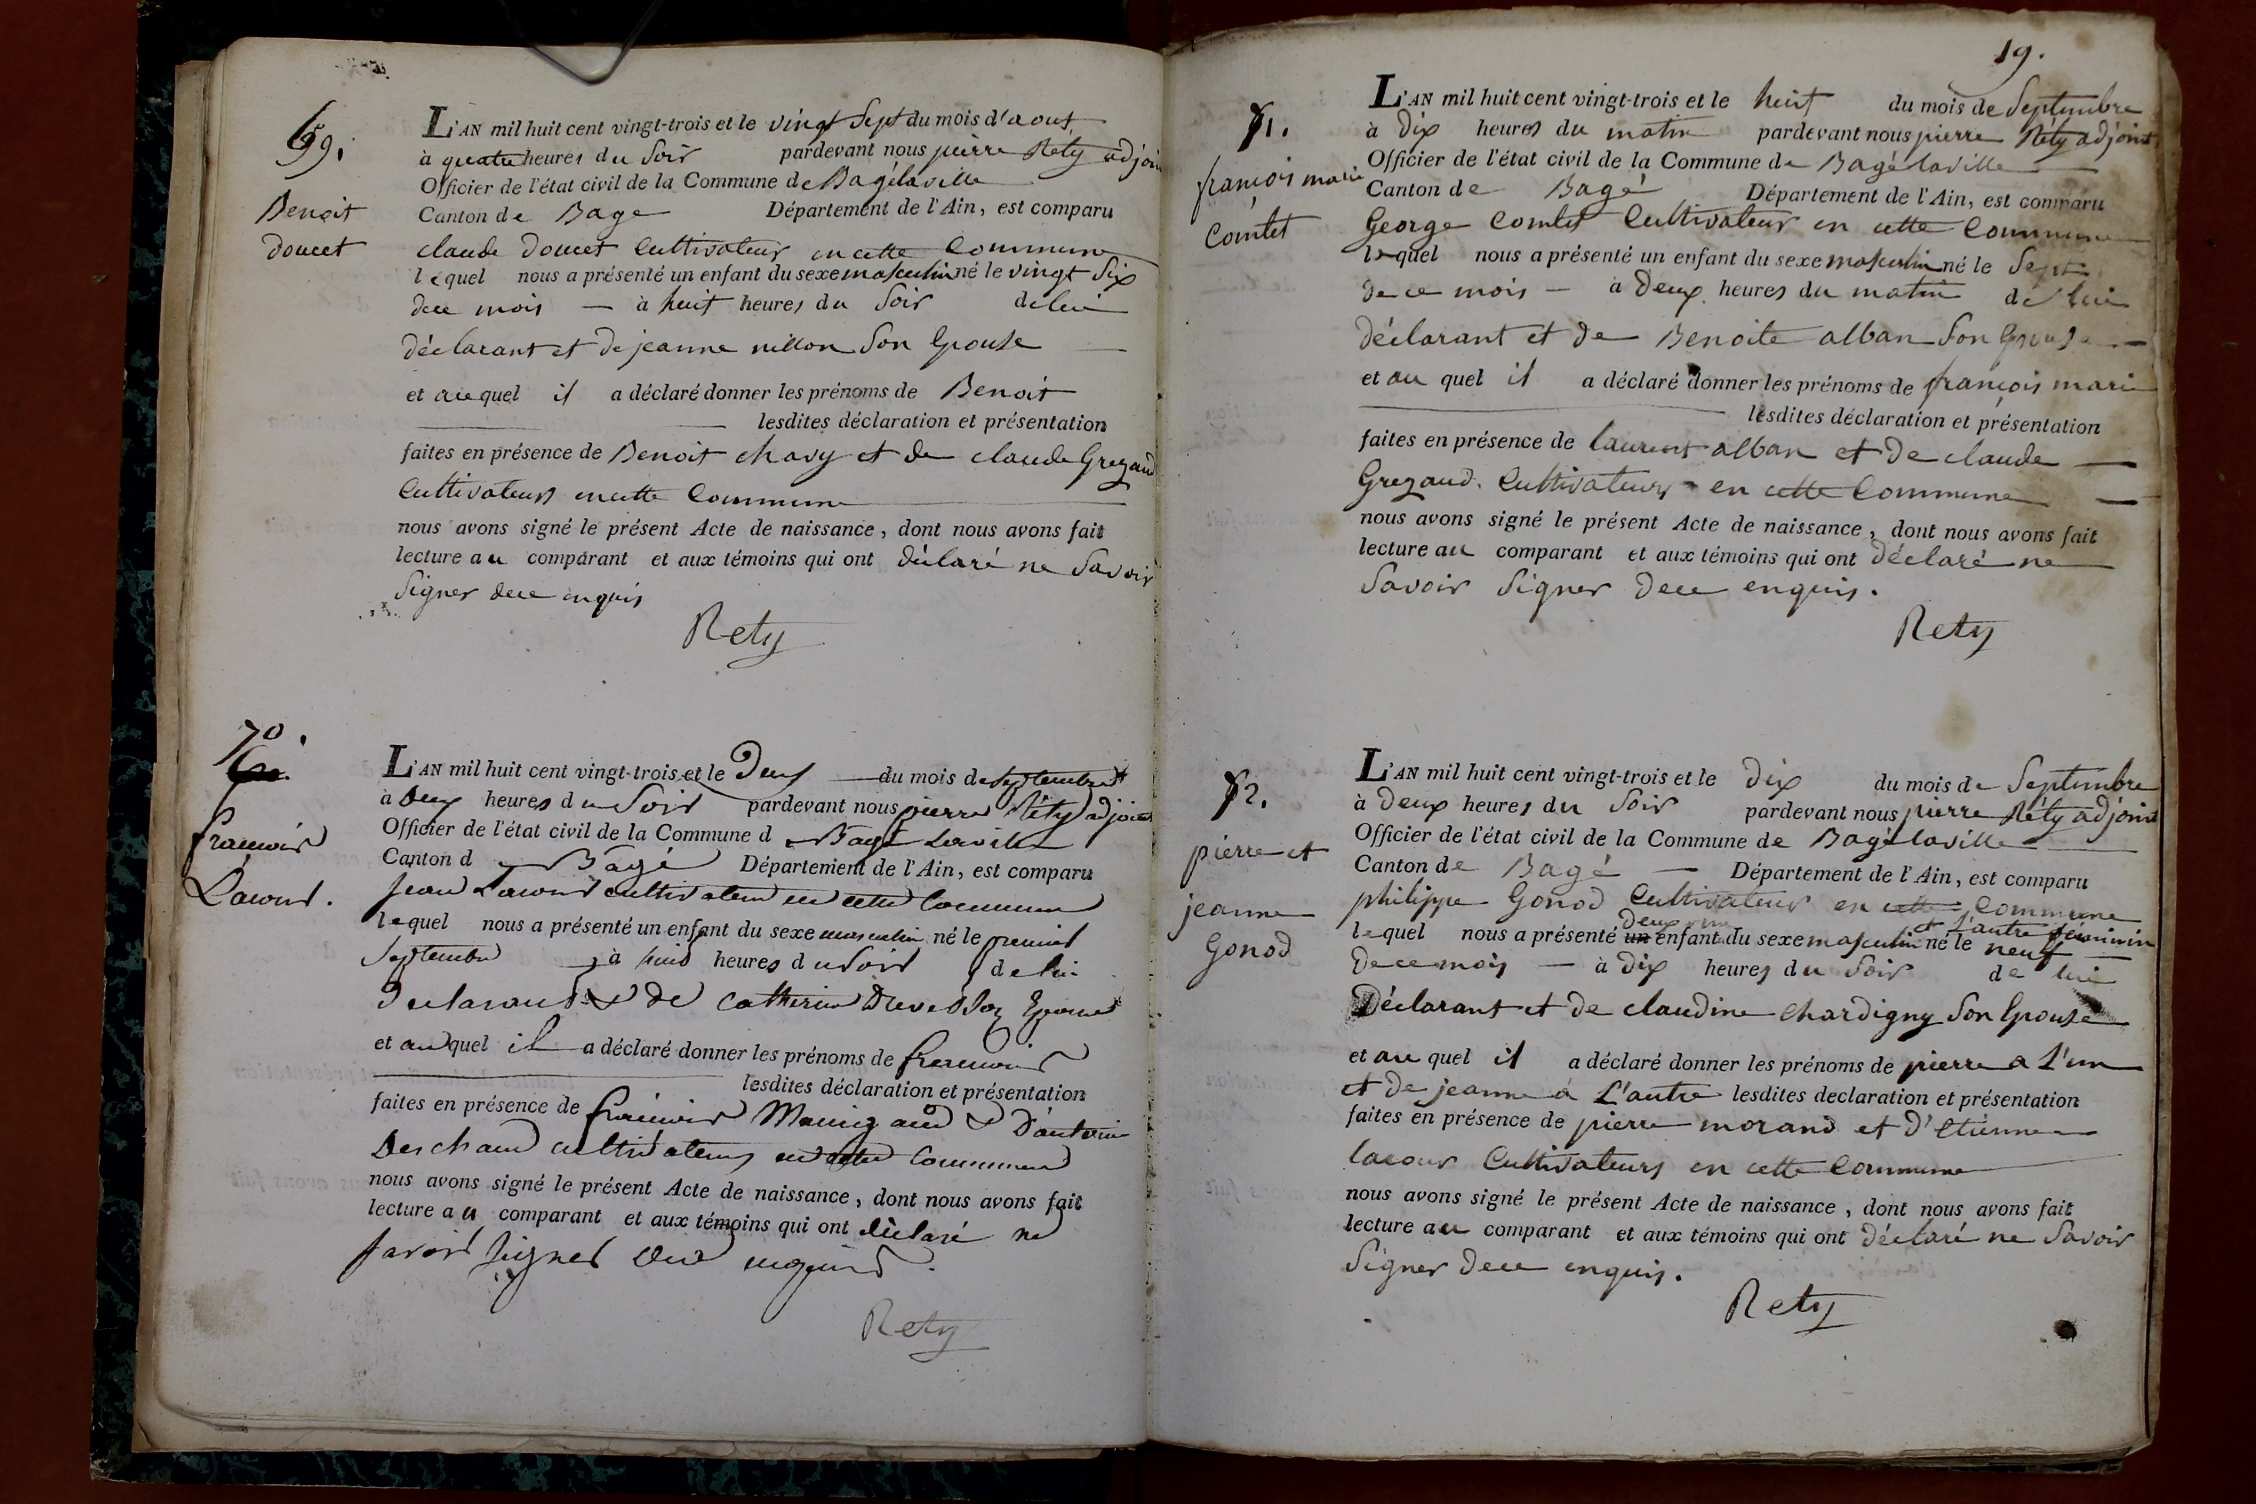 69.
Benoit
doucet
L'AN mil huit cent vingt-trois et le vingt Sept du mois d'aout
à quatre heures du Soir pardevant nous pierre Rety adjoint
Officier de l'état civil de la Commune de Bagélaville
Canton de Bage Département de l'Ain, est comparu
claude doucet Cultivateur en cette Commune
lequel nous a présenté un enfant du sexe masculin né le vingt Six
de ce mois — à huit heures du Soir de lui
déclarant et de jeanne nillon Son Epouse
et auquel il a déclaré donner les prénoms de Benoit
lesdites déclaration et présentation
faites en présence de Benoit chavy et de claude Grezaud
Cultivateurs en cette Commune
nous avons signé le présent Acte de naissance, dont nous avons fait
lecture au comparant et aux témoins qui ont déclaré ne Savoir
Signer de ce enquis
Rety
70.
françois
Lacour.
L'AN mil huit cent vingt-trois et le Deux du mois de septembre
à Deux heures du Soir pardevant nous pierre Réty adjoint
Officier de l'état civil de la Commune d Bagé Laville
Canton d Bagé Département de l'Ain, est comparu
Jean Lacour cultivateur en cette Commune
lequel nous a présenté un enfant du sexe masculin né le premier
Septembre à huit heures du Soir de lui
Declarant & de Catherine Epouse
et au quel il a déclaré donner les prénoms de françois
lesdites déclaration et présentation
faites en présence de françois & D'antoine
Deschamd cultivateurs en cette Commune
nous avons signé le présent Acte de naissance, dont nous avons fait
lecture au comparant et aux témoins qui ont déclaré ne
Savoir Signer de ce enquis.
Rety
19.
71.
françois marie
Comtet
L'AN mil huit cent vingt-trois et le huit du mois de Septembre
à Dix heures du matin pardevant nous pierre Réty adjoint
Officier de l'état civil de la Commune de Bagélaville
Canton de Bagé Département de l'Ain, est comparu
George Comtet Cultivateur en cette Commune
lequel nous a présenté un enfant du sexe masculin né le Sept
de ce mois — à Deux heures du matin de lui
déclarant et de Benoite alban Son Epouse —
et au quel il a déclaré donner les prénoms de françois marie
lesdites déclaration et présentation
faites en présence de laurent alban et de claude —
Grezaud. Cultivateurs en cette Commune —
nous avons signé le présent Acte de naissance, dont nous avons fait
lecture au comparant et aux témoins qui ont déclaré ne
Savoir Signer de ce enquis.
Rety
72.
pierre et
jeanne
Gonod
L'AN mil huit cent vingt-trois et le dix du mois de Septembre
à deux heures du Soir pardevant nous pierre Réty adjoint
Officier de l'état civil de la Commune de Bagélaville
Canton de Bagé — Département de l'Ain, est comparu
philippe Gonod Cultivateur en cette Commune
deux et L'autre féminin
lequel nous a présenté un enfant du sexe masculin né le neuf
de ce mois — à dix heures du Soir de lui
Déclarant et de claudine chardigny Son Epouse
et au quel il a déclaré donner les prénoms de pierre a L'un
et de jeanne à L'autre lesdites declaration et présentation
faites en présence de pierre morand et d'Etienne
lacour Cultivateurs en cette Commune
nous avons signé le présent Acte de naissance, dont nous avons fait
lecture au comparant et aux témoins qui ont déclaré ne Savoir
Signer de ce enquis.
Rety